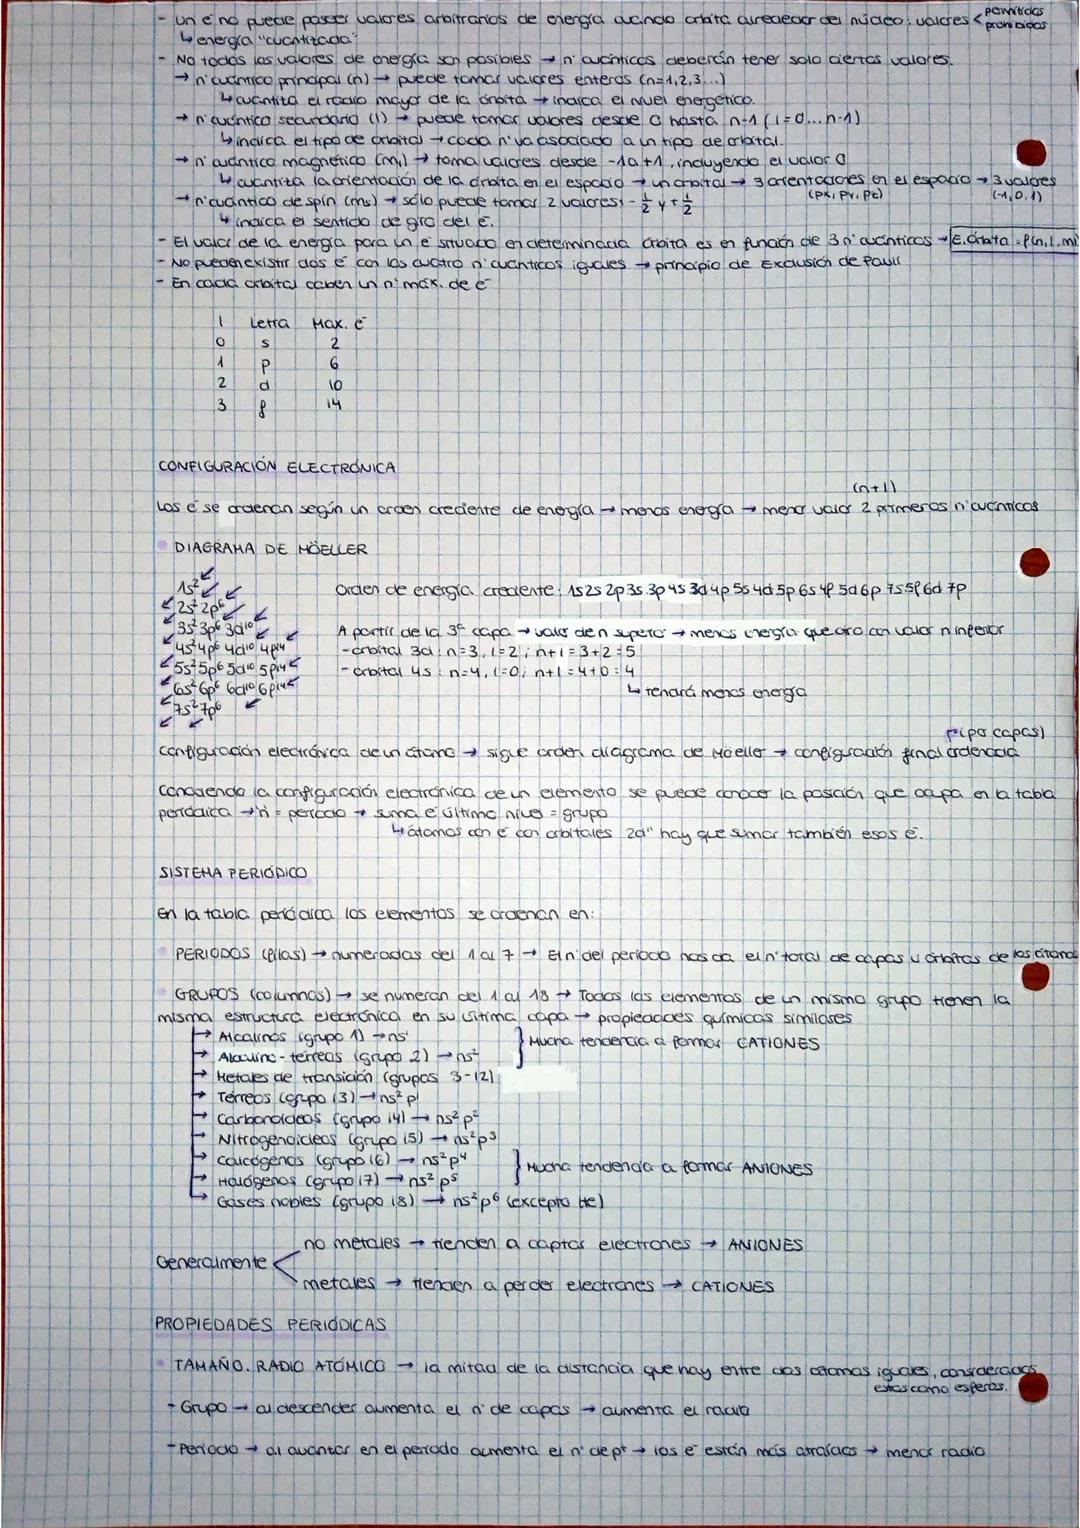 - un e⁻ no puede poseer valores arbitrarios de energía cuando orbita alrededor del núcleo: valores < permitidos
prohibidos
↳ energía "cuantizada"
- No todos los valores de energía son posibles → nº cuánticos deberán tener solo ciertos valores.
→ nº cuántico principal (n) → puede tomar valores enteros (n=1,2,3...)
↳ cuantiza el radio mayor de la órbita → indica el nivel energético.
→ nº cuántico secundario (l) → puede tomar valores desde 0 hasta n-1 (l=0...n-1)
↳ indica el tipo de orbital → cada nº va asociado a un tipo de orbital.
→ nº cuántico magnético (ml) → toma valores desde -l a +l, incluyendo el valor 0
↳ cuantiza la orientación de la órbita en el espacio → un orbital → 3 orientaciones en el espacio → 3 valores
(px, py, pz) (-1,0,1)
→ nº cuántico de spin (ms) → sólo puede tomar 2 valores: -½ y +½
↳ indica el sentido de giro del e⁻.
- El valor de la energía para un e⁻ situado en determinada órbita es en función de 3 nº cuánticos → E.órbita = f(n,l,ml
- No pueden existir dos e⁻ con los cuatro nº cuánticos iguales → principio de Exclusión de Pauli
- En cada orbital caben un nº máx. de e⁻
l Letra Max. e⁻
0 s 2
1 p 6
2 d 10
3 f 14
CONFIGURACIÓN ELECTRÓNICA
(n+l)
Los e⁻ se ordenan según un orden creciente de energía → menos energía → menor valor 2 primeros nº cuánticos
DIAGRAMA DE MÖELLER
1s²
2s² 2p⁶
3s² 3p⁶ 3d¹⁰
4s² 4p⁶ 4d¹⁰ 4f¹⁴
5s² 5p⁶ 5d¹⁰ 5f¹⁴
6s² 6p⁶ 6d¹⁰ 6f¹⁴
7s² 7p⁶
Orden de energía creciente: 1s 2s 2p 3s 3p 4s 3d 4p 5s 4d 5p 6s 4f 5d 6p 7s 5f 6d 7p
A partir de la 3ª capa → valor de n superior → menos energía que otro con valor n inferior
- orbital 3d: n=3, l=2; n+l=3+2=5
- orbital 4s: n=4, l=0; n+l=4+0=4
↳ tendrá menos energía
(por capas)
Configuración electrónica de un átomo → sigue orden diagrama de Möeller → configuración final ordenada
Conociendo la configuración electrónica de un elemento se puede conocer la posición que ocupa en la tabla
periódica → n = periodo → suma e⁻ último nivel = grupo
↳ átomos con e⁻ con orbitales "d" hay que sumar también esos e⁻.
SISTEMA PERIÓDICO
En la tabla periódica los elementos se ordenan en:
PERIODOS (filas) → numeradas del 1 al 7 → El nº del periodo nos da el nº total de capas u órbitas de los átomos
GRUPOS (columnas) → se numeran del 1 al 18 → Todos los elementos de un mismo grupo tienen la
misma estructura electrónica en su última capa → propiedades químicas similares
→ Alcalinos (grupo 1) → ns¹
→ Alcalino-térreos (grupo 2) → ns²
} Mucha tendencia a formar CATIONES
→ Metales de transición (grupos 3-12)
→ Térreos (grupo 13) → ns² p¹
→ Carbonoideos (grupo 14) → ns² p²
→ Nitrogenoideos (grupo 15) → ns² p³
→ Calcógenos (grupo 16) → ns² p⁴
→ Halógenos (grupo 17) → ns² p⁵
} Mucha tendencia a formar ANIONES
→ Gases nobles (grupo 18) → ns² p⁶ (excepto He)
no metales → tienden a captar electrones → ANIONES
Generalmente <
metales → tienden a perder electrones → CATIONES
PROPIEDADES PERIÓDICAS
TAMAÑO. RADIO ATÓMICO → la mitad de la distancia que hay entre dos átomos iguales, considerados
estos como esferas.
- Grupo → al descender aumenta el nº de capas → aumenta el radio
- Periodo → al avanzar en el periodo aumenta el nº de p⁺ → los e⁻ están más atraídos → menor radio